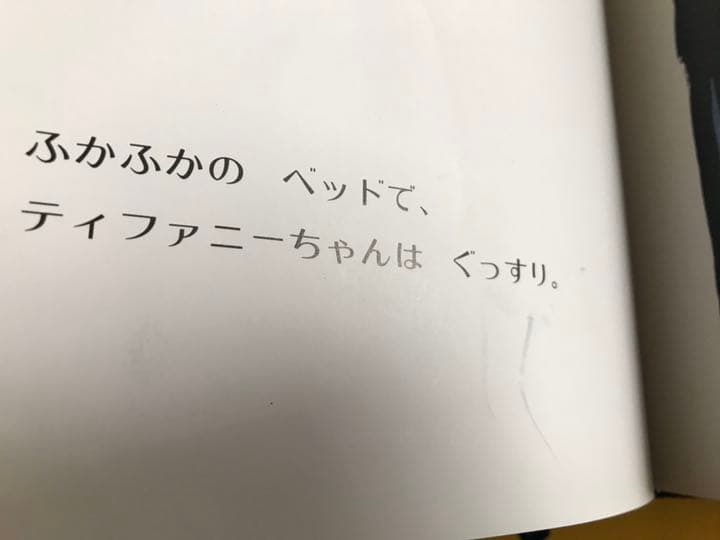 ふかふかの　ベッドで、
ティファニーちゃんは　ぐっすり。